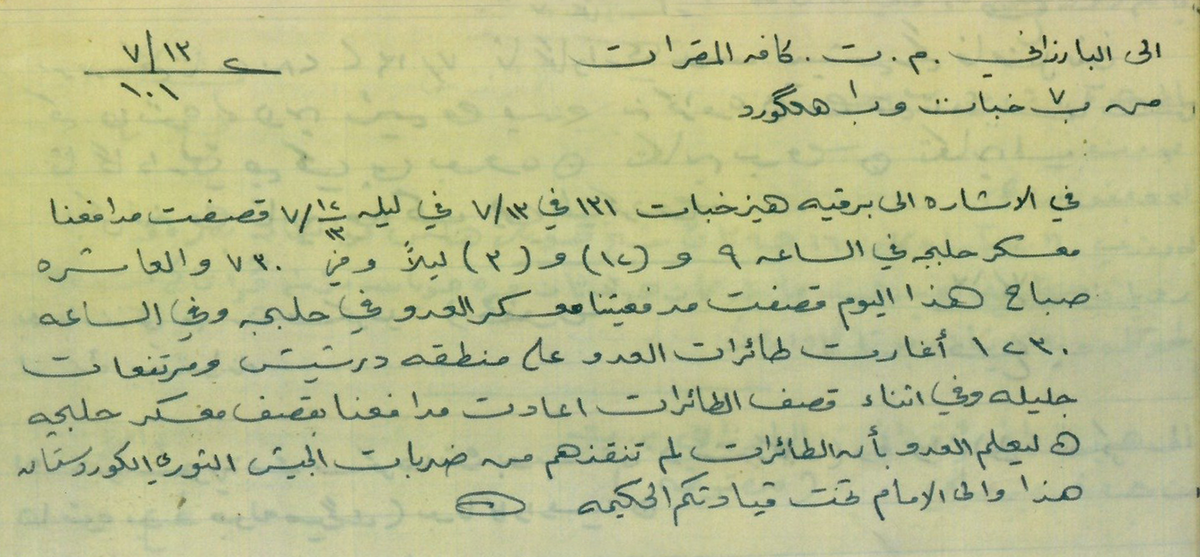 الى البارزاني . م . ت . كافه المقرات ٢ ٧/١٣
١٠١
من ب٧ خبات و ب١ هه‌لگورد
في الاشاره الى برقيه هيز خبات ١٣١ في ٧/١٣ في ليله ٧/١٢ ١٣ قصفت مدافعنا
معسكر حلبجه في الساعه ٩ و (١٢) و (٣) ليلاً وفي ٧٣٠ والعاشره
صباح هذا اليوم قصفت مدفعيتنا معسكر العدو في حلبجه وفي الساعه
١٢٣٠ أغارت طائرات العدو على منطقه درشيش ومرتفعات
جليله وفي اثناء قصف الطائرات اعادت مدافعنا بقصف معسكر حلبجه
ليعلم العدو بأن الطائرات لم تنقذهم من ضربات الجيش الثوري الكوردستان
هذا والى الامام تحت قيادتكم الحكيمه